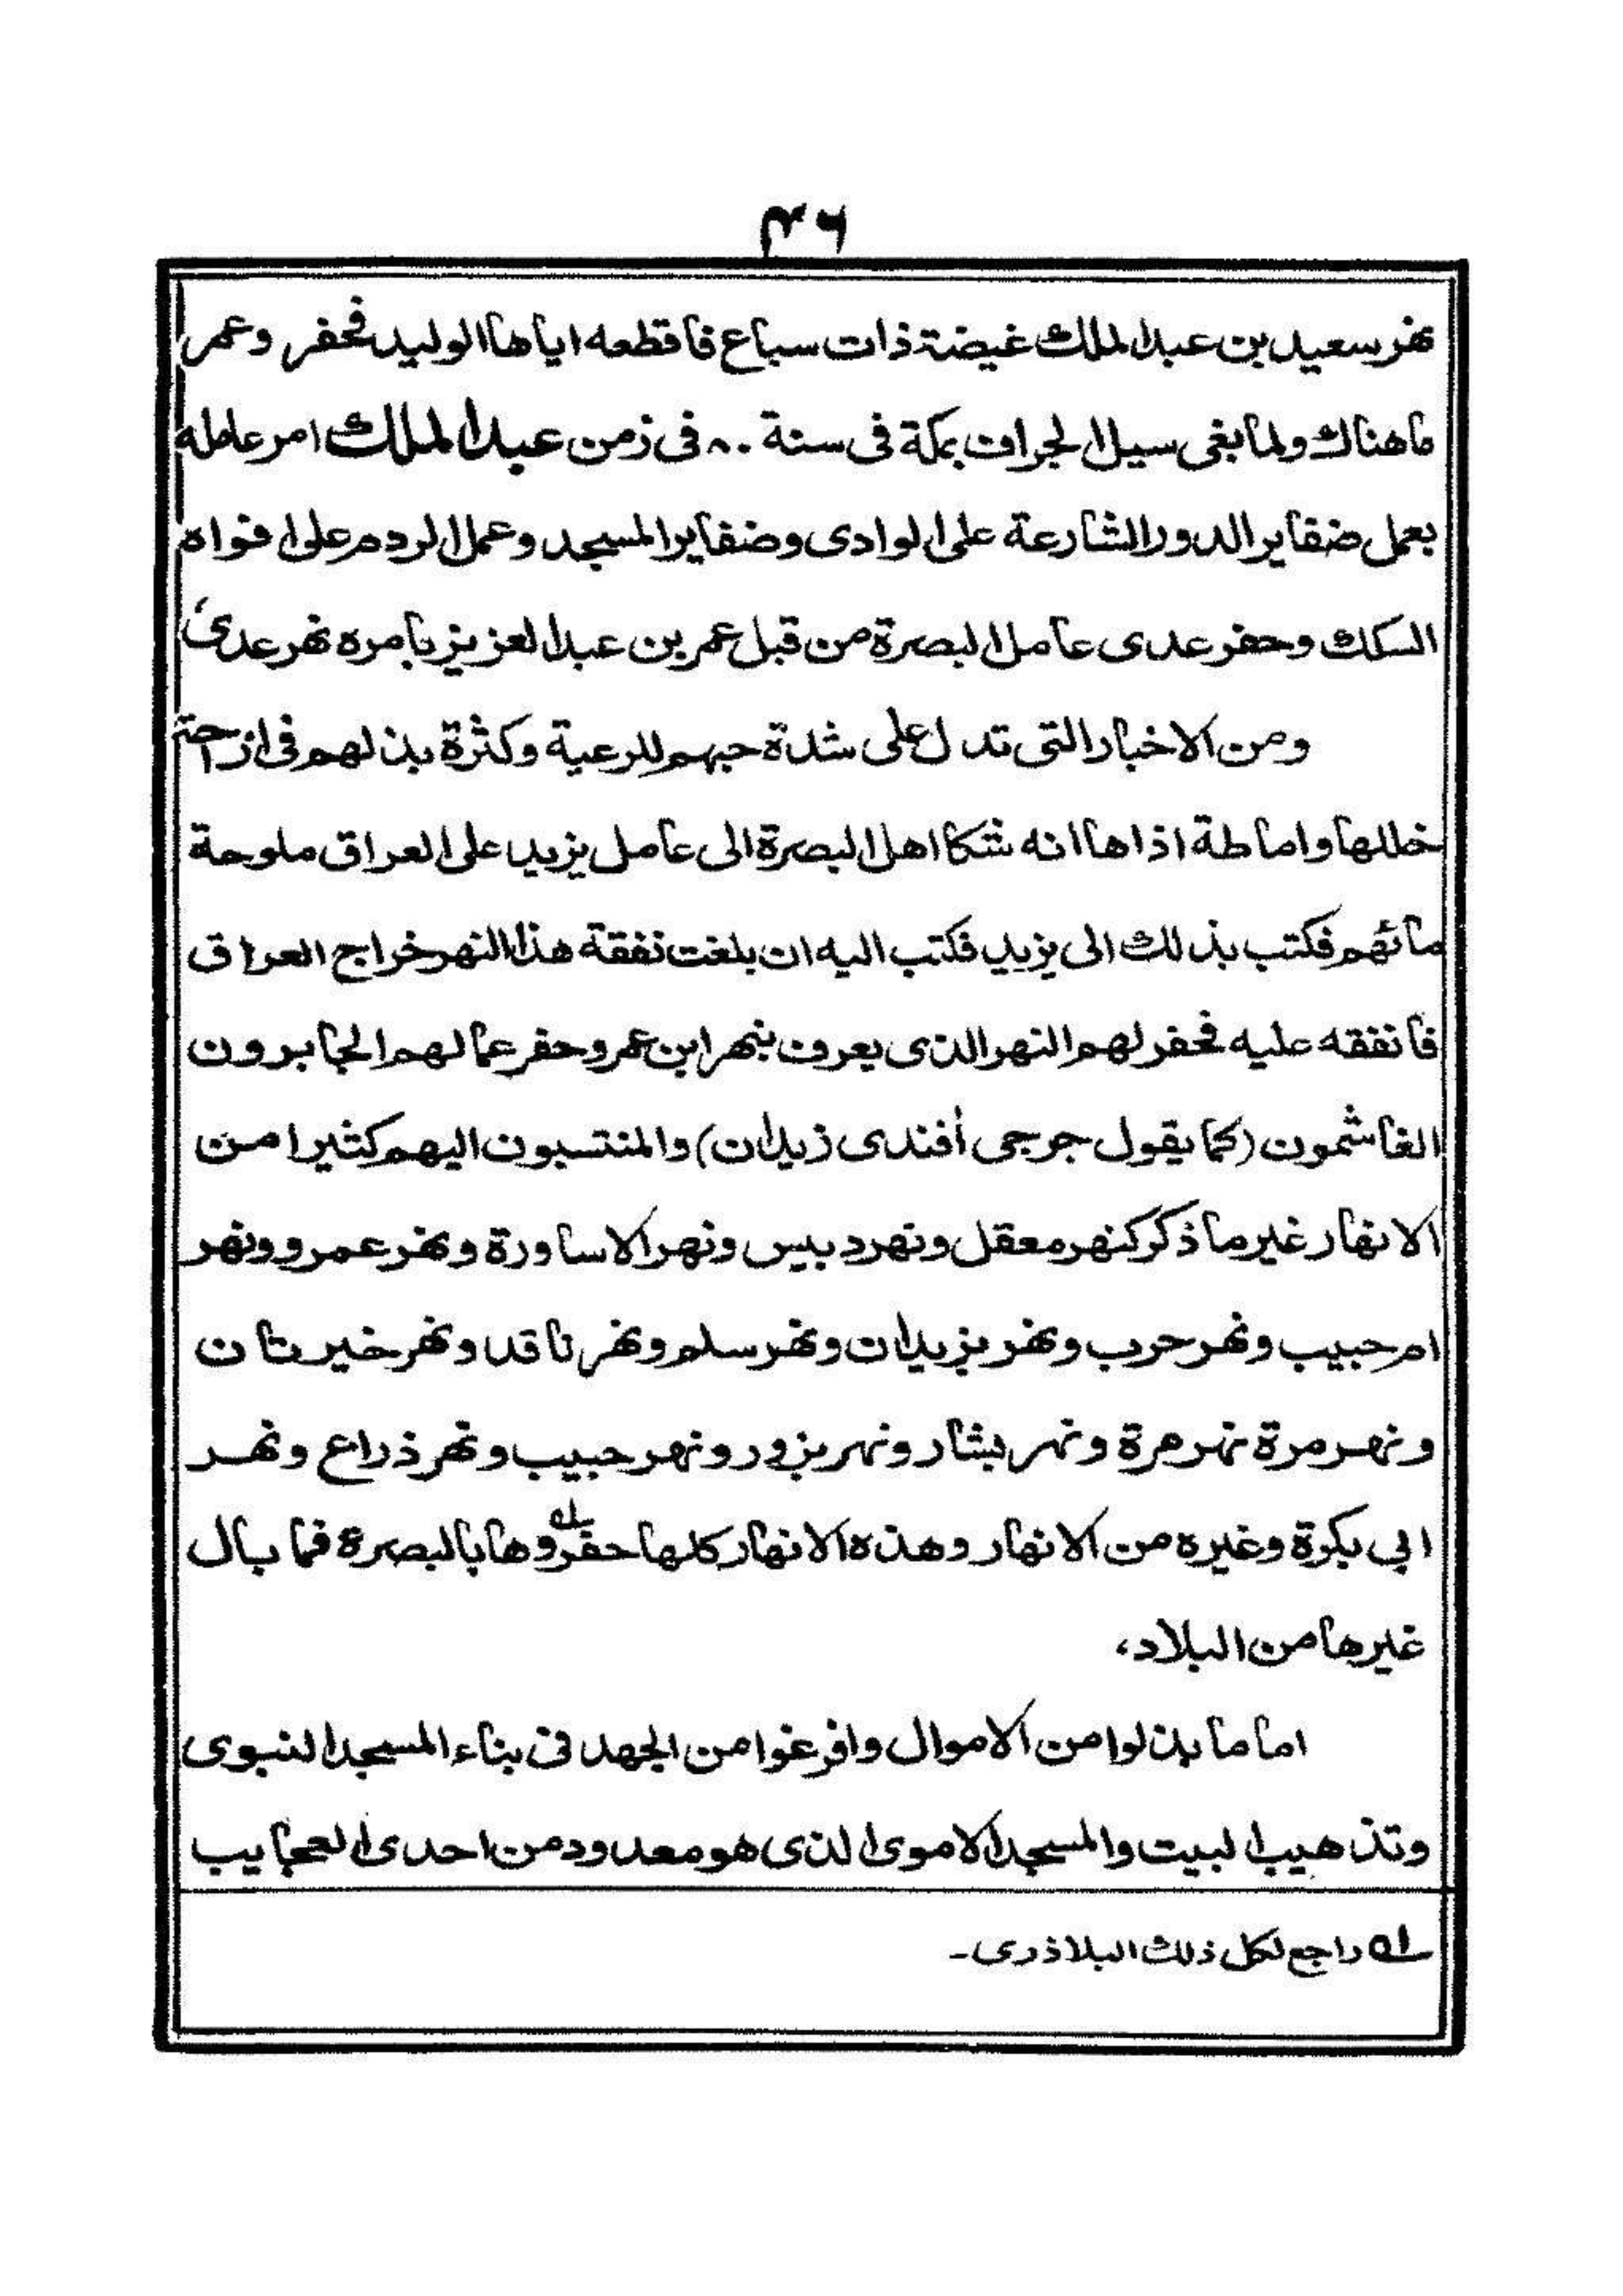 ٤٦
نهر سعيد بن عبد الملك غيضة ذات سباع فاقطعه اياها الوليد فحفر وعمر
ما هناك ولما بغى سيل الجراف بمكة في سنة ٨٠ في زمن عبد الملك امر عامله
بعمل ضفاير الدور الشارعة على الوادى وضفاير المسجد وعمل الردم على افواه
السكك وحفر عدى عامل البصرة من قبل عمر بن عبد العزيز بامره نهر عدى،
ومن الاخبار التى تدل على شدة حبهم للرعية وكثرة بذلهم فى ازاحة
خللها واماطة اذاها انه شكا اهل البصرة الى عامل يزيد على العراق ملوحة
مائهم فكتب بذلك الى يزيد فكتب اليه ان بلغت نفقة هذا النهر خراج العراق
فانفقه عليه فحفر لهم النهر الذى يعرف بنهر ابن عمر وحفر عمالهم الجابرون
الغاشمون (كما يقول جرجى أفندى زيدان) والمنتسبون اليهم كثيرا من
الانهار غير ما ذكر كنهر معقل ونهر دبيس ونهر الاساورة ونهر عمرو ونهر
ام حبيب ونهر حرب ونهر يزيدان ونهر سلم ونهر نافذ ونهر خيرتان
ونهر مرة نهر مرة ونهر بشار ونهر بزور ونهر حبيب ونهر ذراع ونهر
ابي بكرة وغيره من الانهار وهذه الانهار كلها حفروها بالبصرة فما بال
غيرها من البلاد،
اما ما بذلوا من الاموال وافرغوا من الجهد فى بناء المسجد النبوى
وتذهيب البيت والمسجد الاموى الذى هو معدود من احدى العجايب
له راجع لكل ذلك البلاذرى۔